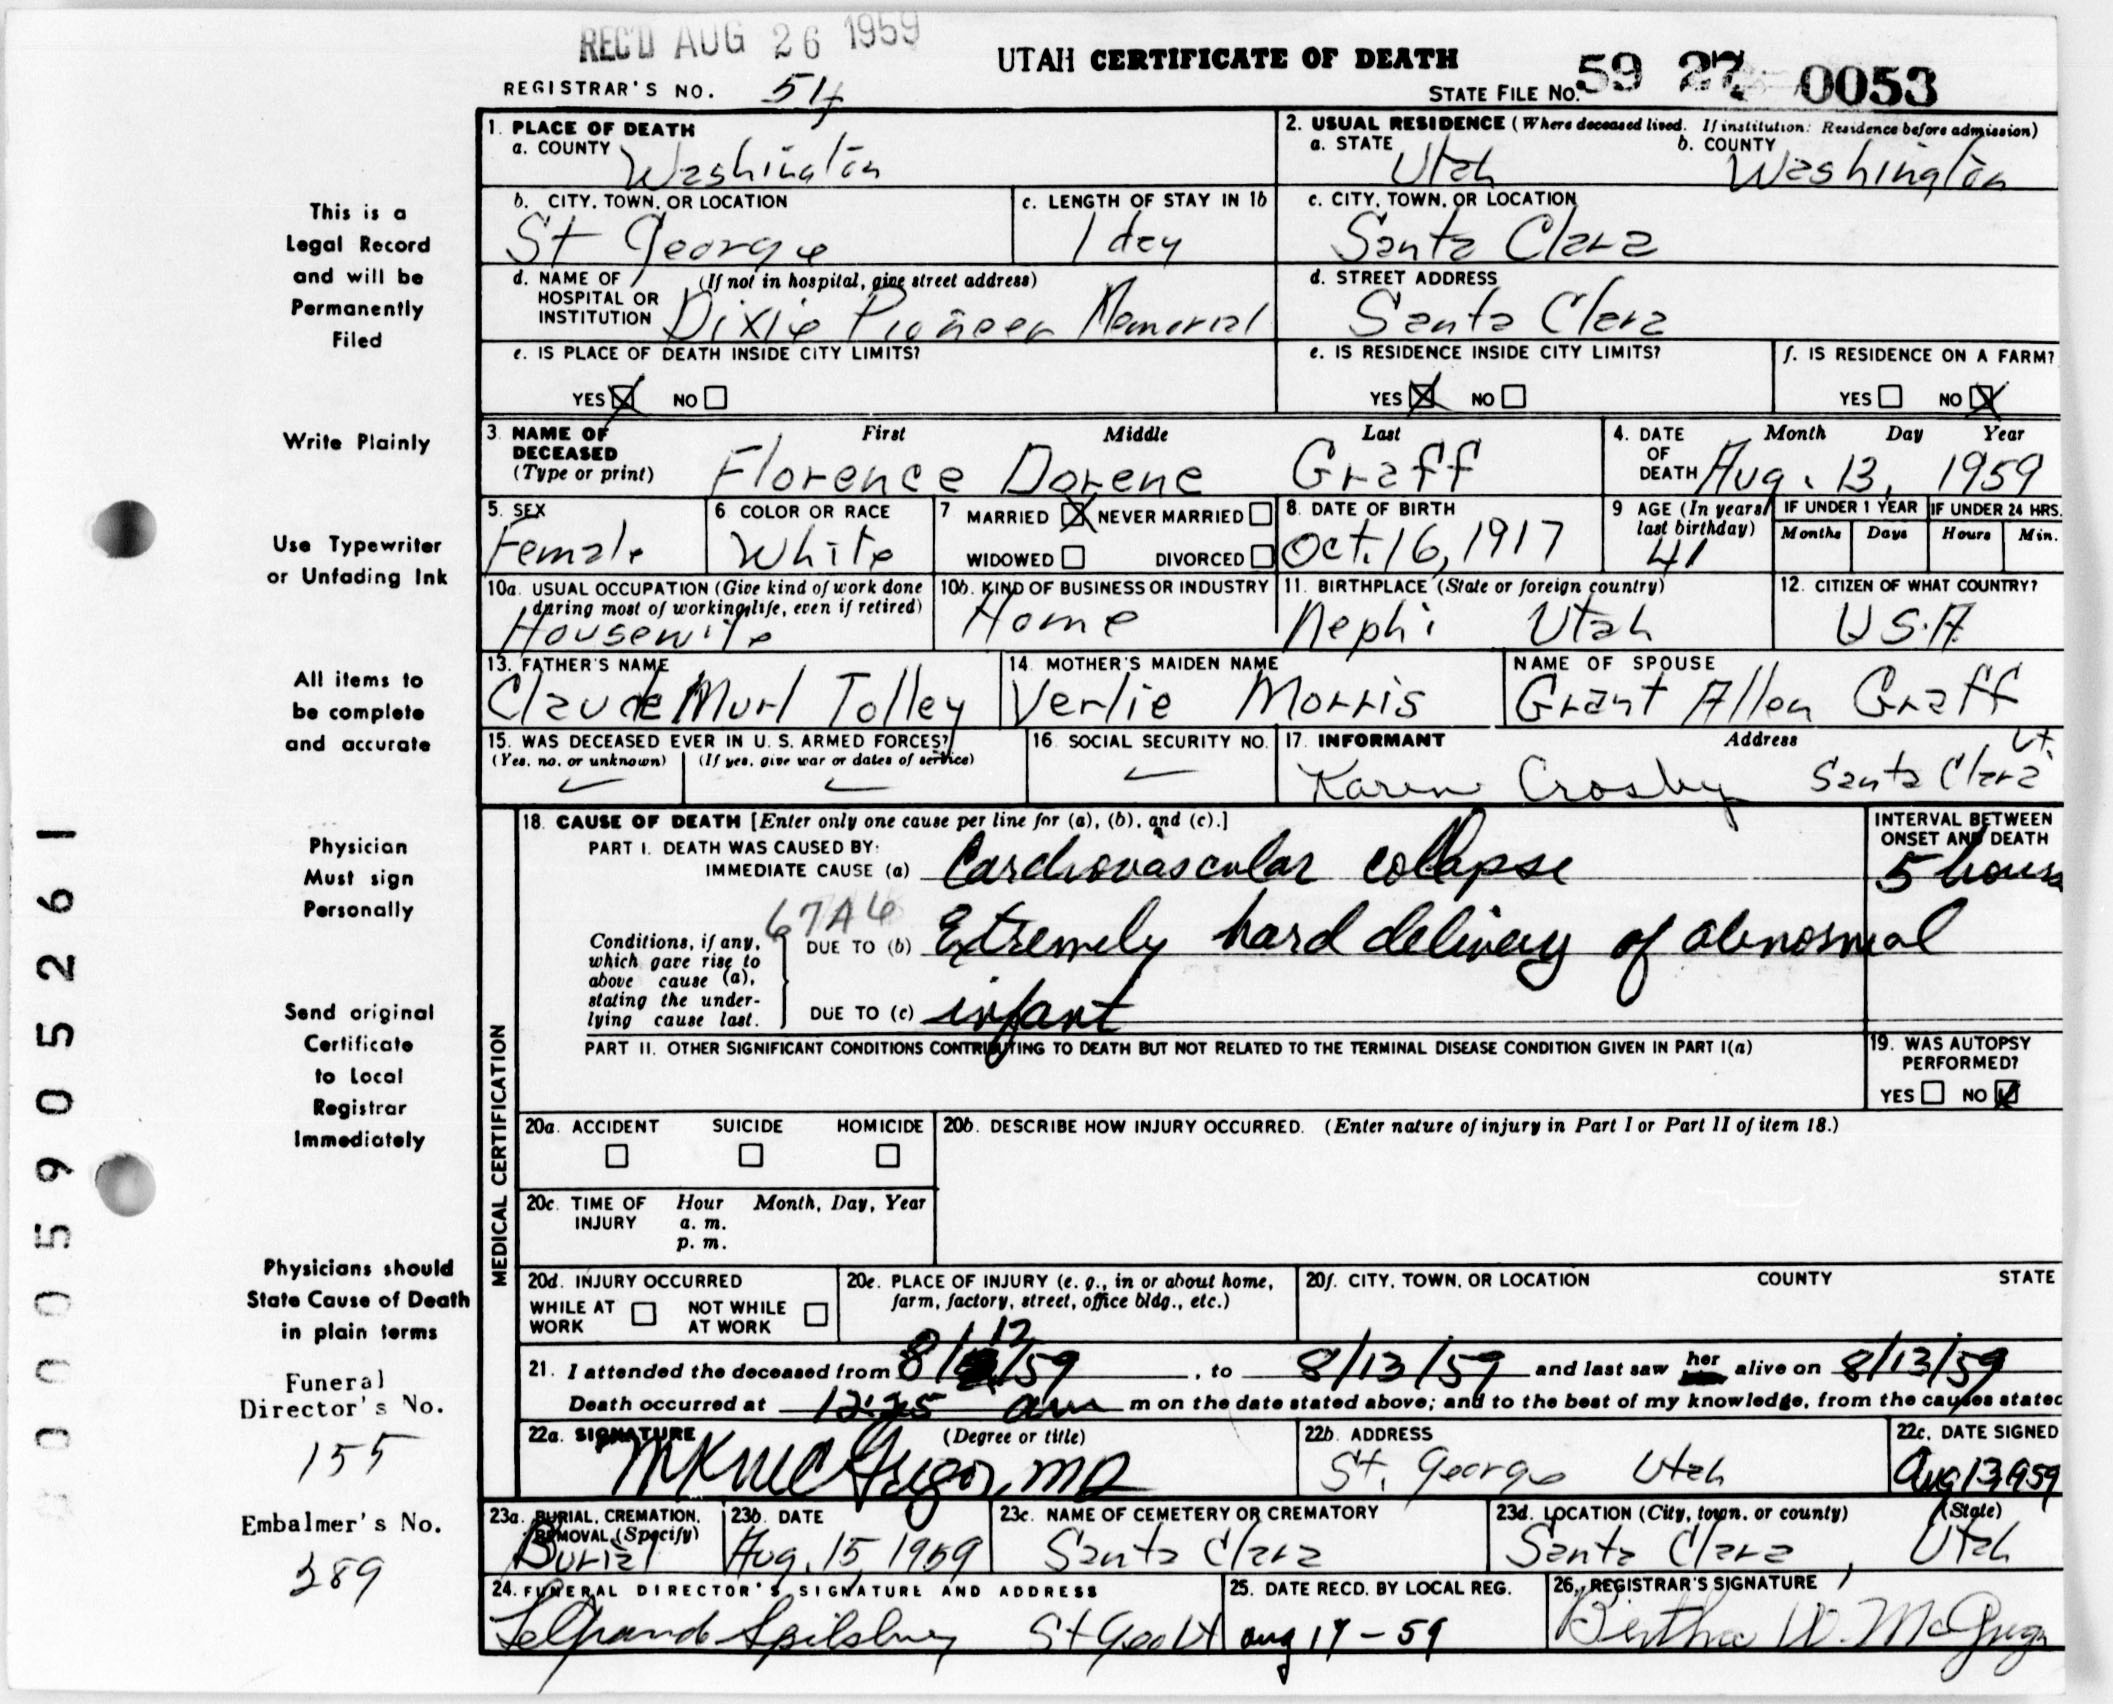 REC'D AUG 26 1959
UTAH CERTIFICATE OF DEATH
REGISTRAR'S NO. 54
STATE FILE NO. 59 27 0053
This is a
Legal Record
and will be
Permanently
Filed
Write Plainly
Use Typewriter
or Unfading Ink
All items to
be complete
and accurate
Physician
Must sign
Personally
Send original
Certificate
to Local
Registrar
Immediately
Physicians should
State Cause of Death
in plain terms
Funeral
Director's No.
155
Embalmer's No.
289
0005905261
1. PLACE OF DEATH
a. COUNTY Washington
2. USUAL RESIDENCE (Where deceased lived. If institution: Residence before admission)
a. STATE Utah b. COUNTY Washington
b. CITY, TOWN, OR LOCATION St George
c. LENGTH OF STAY IN 1b 1 day
c. CITY, TOWN, OR LOCATION Santa Clara
d. NAME OF HOSPITAL OR INSTITUTION (If not in hospital, give street address) Dixie Pioneer Memorial
d. STREET ADDRESS Santa Clara
e. IS PLACE OF DEATH INSIDE CITY LIMITS?
YES X NO
e. IS RESIDENCE INSIDE CITY LIMITS?
YES X NO
f. IS RESIDENCE ON A FARM?
YES NO X
3. NAME OF DECEASED (Type or print) First Middle Last
Florence Dorene Graff
4. DATE OF DEATH Month Day Year
Aug. 13, 1959
5. SEX Female
6. COLOR OR RACE White
7 MARRIED X NEVER MARRIED
WIDOWED DIVORCED
8. DATE OF BIRTH Oct. 16, 1917
9 AGE (In years last birthday) 41
IF UNDER 1 YEAR Months Days
IF UNDER 24 HRS. Hours Min.
10a. USUAL OCCUPATION (Give kind of work done during most of working life, even if retired) Housewife
10b. KIND OF BUSINESS OR INDUSTRY Home
11. BIRTHPLACE (State or foreign country) Nephi Utah
12. CITIZEN OF WHAT COUNTRY? U.S.A.
13. FATHER'S NAME Claude Murl Tolley
14. MOTHER'S MAIDEN NAME Verlie Morris
NAME OF SPOUSE Grant Allen Graff
15. WAS DECEASED EVER IN U. S. ARMED FORCES?
(Yes, no, or unknown) (If yes, give war or dates of service)
16. SOCIAL SECURITY NO.
17. INFORMANT Address
Karen Crosby Santa Clara Ut.
MEDICAL CERTIFICATION
18. CAUSE OF DEATH [Enter only one cause per line for (a), (b), and (c).]
INTERVAL BETWEEN ONSET AND DEATH
PART I. DEATH WAS CAUSED BY:
IMMEDIATE CAUSE (a) Cardiovascular collapse 5 hours
67A6
Conditions, if any, which gave rise to above cause (a), stating the underlying cause last.
DUE TO (b) Extremely hard delivery of abnormal
DUE TO (c) infant
PART II. OTHER SIGNIFICANT CONDITIONS CONTRIBUTING TO DEATH BUT NOT RELATED TO THE TERMINAL DISEASE CONDITION GIVEN IN PART I(a)
19. WAS AUTOPSY PERFORMED?
YES NO X
20a. ACCIDENT SUICIDE HOMICIDE
20b. DESCRIBE HOW INJURY OCCURRED. (Enter nature of injury in Part I or Part II of item 18.)
20c. TIME OF INJURY Hour Month, Day, Year
a. m.
p. m.
20d. INJURY OCCURRED
WHILE AT WORK NOT WHILE AT WORK
20e. PLACE OF INJURY (e. g., in or about home, farm, factory, street, office bldg., etc.)
20f. CITY, TOWN, OR LOCATION COUNTY STATE
21. I attended the deceased from 8/12/59, to 8/13/59 and last saw her alive on 8/13/59
Death occurred at 12:25 am m on the date stated above; and to the best of my knowledge, from the causes stated
22a. SIGNATURE (Degree or title)
MK McGregor, MD
22b. ADDRESS St. George Utah
22c. DATE SIGNED Aug 13, 1959
23a. BURIAL, CREMATION, REMOVAL (Specify) Burial
23b. DATE Aug. 15, 1959
23c. NAME OF CEMETERY OR CREMATORY Santa Clara
23d. LOCATION (City, town, or county) (State)
Santa Clara, Utah
24. FUNERAL DIRECTOR'S SIGNATURE AND ADDRESS
Spilsbury St Geo Ut
25. DATE RECD. BY LOCAL REG. Aug 17-59
26. REGISTRAR'S SIGNATURE
Bertha W. McGregor